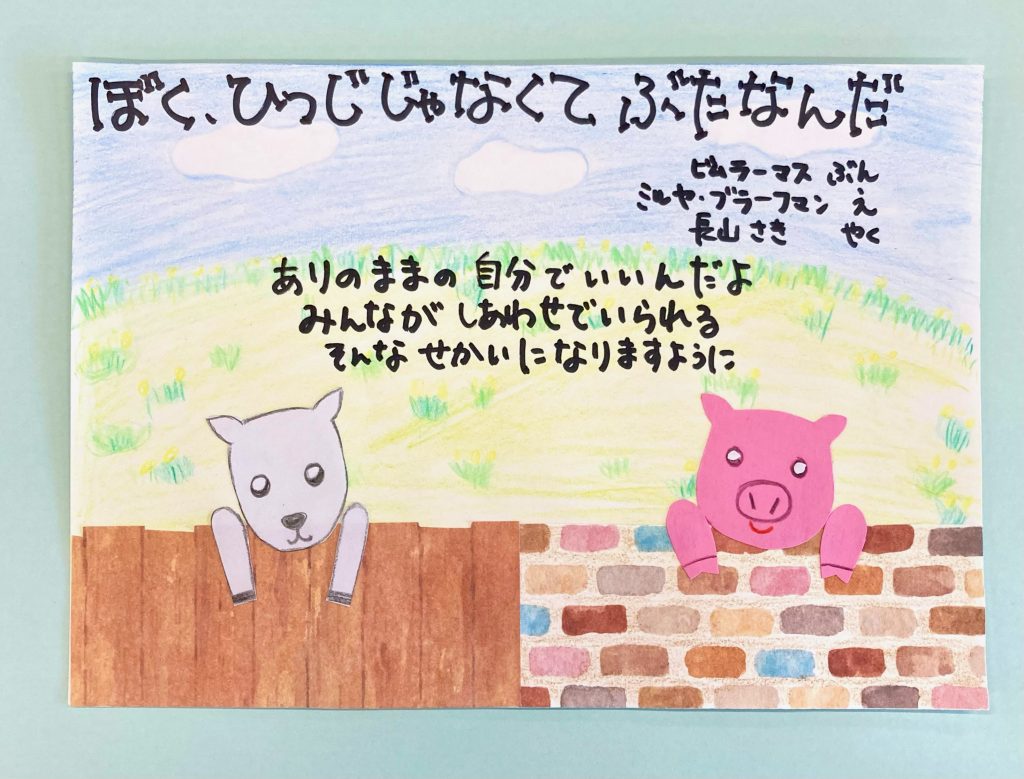 ぼく、ひつじじゃなくて ぶたなんだ
ピムラーマス ぶん
ミルヤ・プラーフマン え
長山さき やく
ありのままの自分でいいんだよ
みんなが しあわせでいられる
そんな せかいになりますように